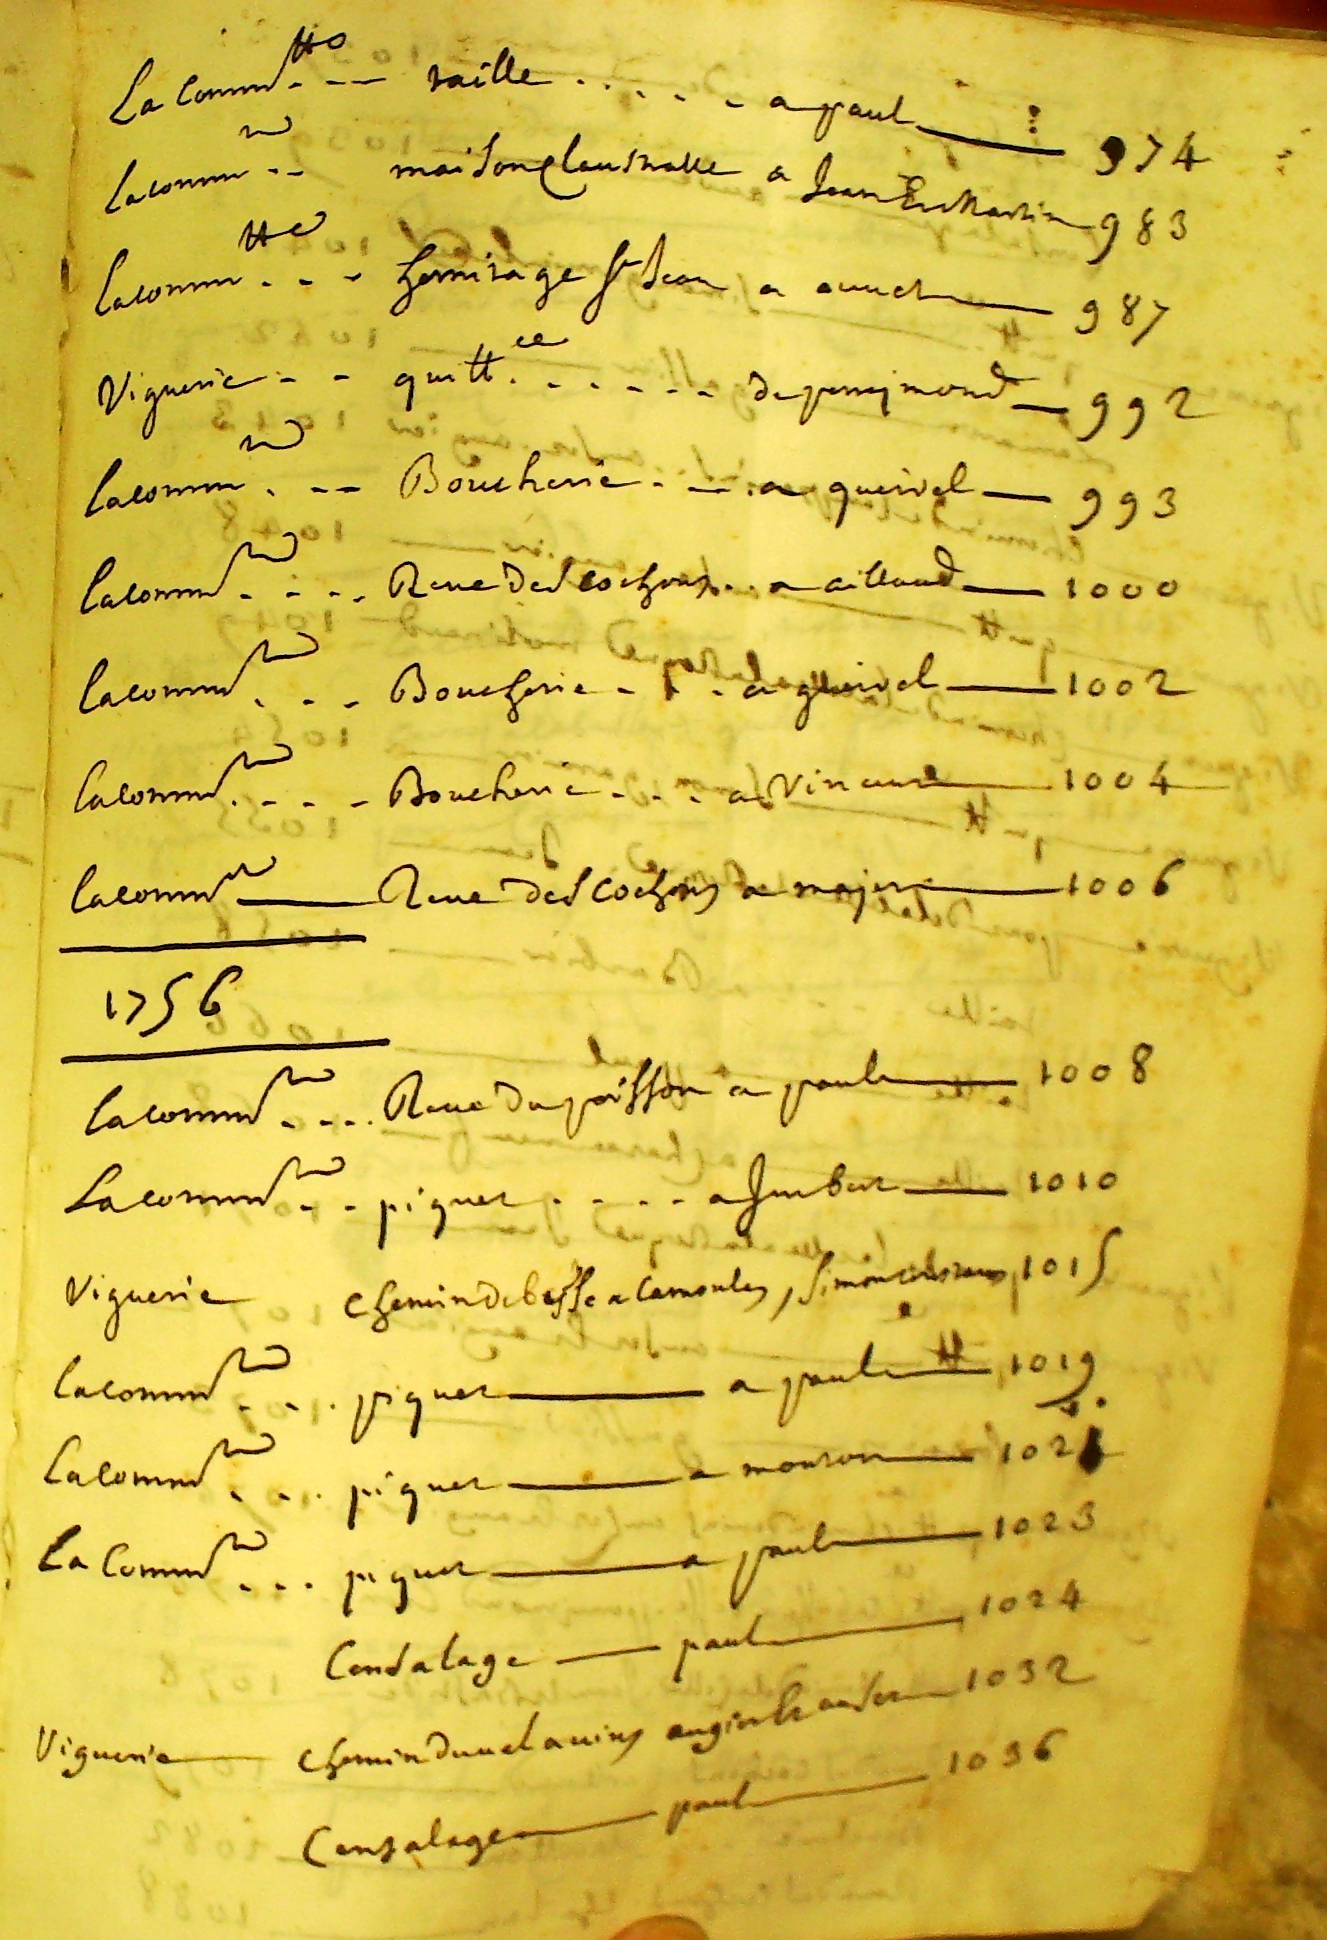 La Comm.tté --- taille ..... a paul 974
La comm.té -- maison Claustralle a Jean 983
La comm.tté --- hermitage St Jean a 987
Viguerie -- quitt.ce ...... de perrymond 992
La comm.té --- Boucherie --- a queirel 993
La comm.té .... Reve Des Cochons .. a aillaud 1000
La comm.té --- Boucherie --- a queirel 1002
La comm.té .... Boucherie ... a Vincent 1004
La comm.té Reve Des Cochons a 1006
1756
La comm.té .... Reve Du poisson a paul 1008
La comm.té --- piquet .... a Jmbert 1010
Viguerie Chemin De besse a Camoules, Simon 1015
La comm.té ... piquet a paul 1019
La comm.té ... piquet a mouton 102
La Comm.té ... piquet a paul 1023
Censalage paul 1024
Viguerie Chemin Du 1032
Censalage paul 1036